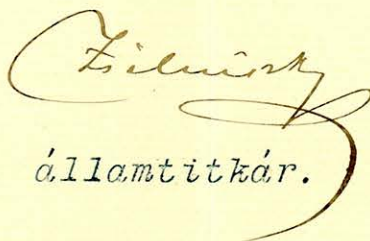 Zsilinszky
államtitkár.